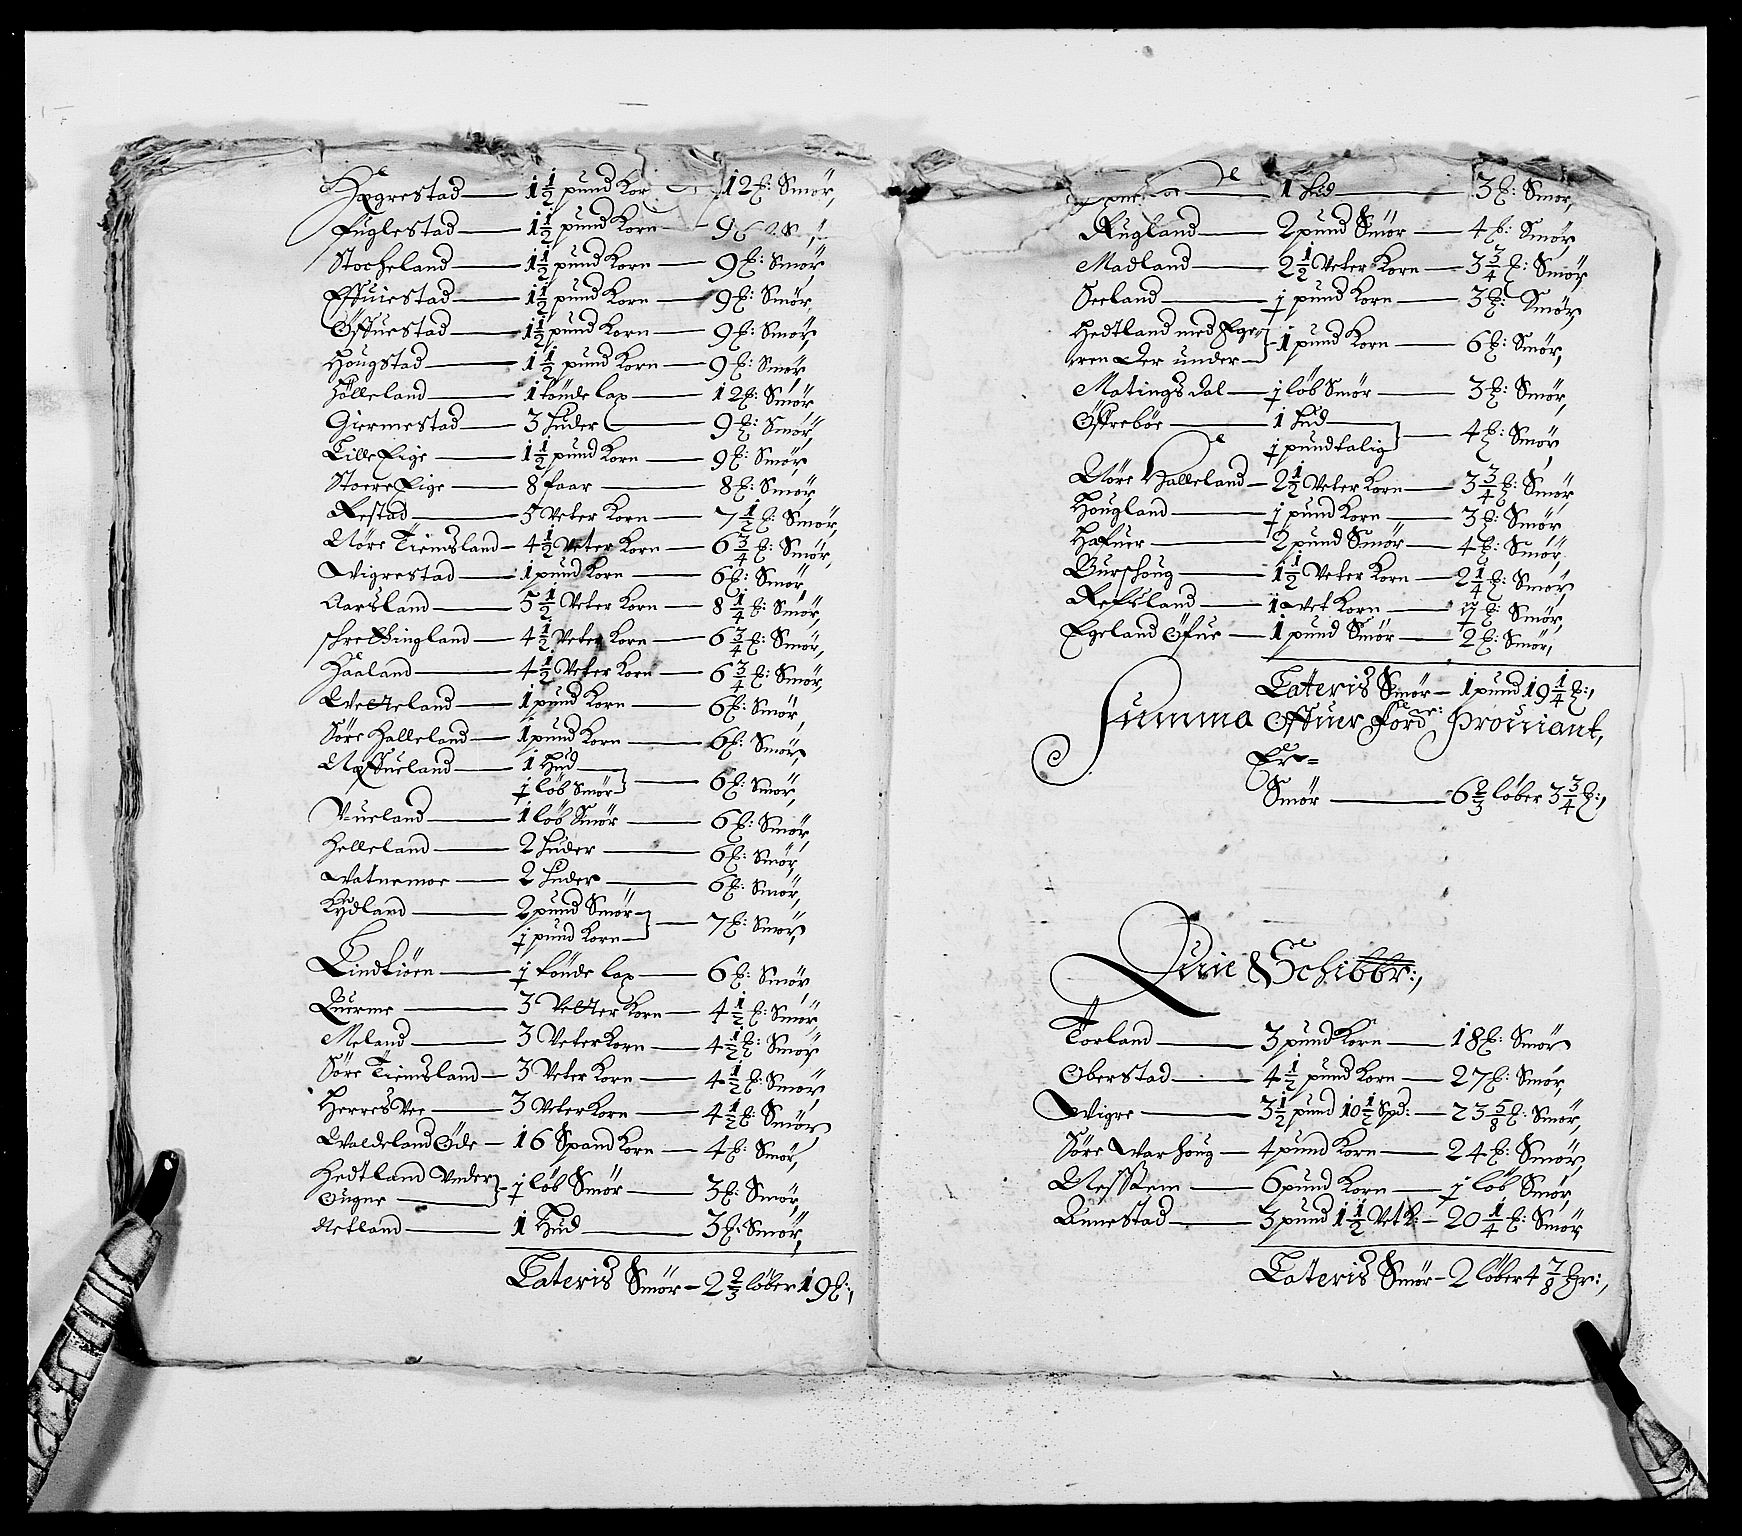 Hægrestad — 1½ pund Kor 12 ℔: Smör,
Fuglestad — 1½ pund Korn — 9
Stocheland — 1½ pund Korn — 9 ℔: Smör
Effuiestad — 1½ pund Korn — 9 ℔: Smör,
Öffuestad — 1½ pund Korn — 9 ℔: Smör,
Hougstad — 1½ pund Korn — 9 ℔: Smör
Hölleland — 1 tönde lax — 12 ℔: Smör
Giermestad — 3 huder — 9 ℔: Smör,
Lille Eige — 1½ pund Korn — 9 ℔: Smör
Stoere Eige — 8 faar — 8 ℔: Smör
Restad — 5 Veter Korn — 7½ ℔: Smör,
Nöre Tiemsland — 4½ Veter Korn — 6¾ ℔: Smör,
Wigrestad — 1 pund Korn — 6 ℔: Smör,
Aarsland — 5½ Veter Korn — 8¼ ℔: Smör,
Schrettingland — 4½ Veter Korn — 6¾ ℔: Smör,
Haaland — 4½ Veter Korn — 6¾ ℔: Smör,
Wetteland — 1 pund Korn — 6 ℔: Smör,
Söre Halleland — 1 pund Korn — 6 ℔: Smör,
Næffueland — 1 Hud
½ löb Smör — 6 ℔: Smör,
Vueland — 1 löb Smör — 6 ℔: Smör
Helleland — 2 huder — 6 ℔: Smör,
Watnemoe — 2 huder — 6 ℔: Smör,
Lydland — 2 pund Smör
½ pund Korn — 7 ℔: Smör,
Lindtiörn — ½ tönde lax — 6 ℔: Smör
Querme — 3 Vetter Korn — 4½ ℔: Smör
Meland — 3 Veter Korn — 4½ ℔: Smör
Söre Tiemsland — 3 Veter Korn — 4½ ℔: Smör,
Herres Vee — 3 Veter Korn — 4½ ℔: Smör,
Waldeland Öde — 16 Spand Korn — 4 ℔: Smör,
Hedtland Under
Ougne — ½ löb Smör — 3 ℔: Smör,
Netland — ½ Hud — 3 ℔: Smör,
Lateris Smör — 2⅔ löber 19 ℔:,
½ hud — 3 ℔: Smör,
Rugland — 2 pund Smör — 4 ℔: Smör,
Madland — 2½ Veter Korn — 3¾ ℔: Smör,
Seeland — ½ pund Korn — 3 ℔: Smör,
Hedtland med Ege
ren der under — 1 pund Korn — 6 ℔: Smör,
Matings dal — ½ löb Smör — 3 ℔: Smör,
Öffreböe — ½ hud
½ pund talig — 4 ℔: Smör,
Nöre Halleland — 2½ Veter Korn — 3¾ ℔: Smör
Hougland — ½ pund Korn — 3 ℔: Smör
Hafuer — 2 pund Smör — 4 ℔: Smör,
Gurshoug — 1½ Veter Korn — 2¼ ℔: Smör,
Refsland — 1 vet Korn — 1½ ℔: Smör,
Egeland Öfue — 1 pund Smör — 2 ℔: Smör,
Lateris Smör — 1 pund 19¼ ℔:,
Summa Offuer fordne: Prouiant,
Er =
Smör — 6⅔ löber 3¾ ℔:,
Quie Schibbr:,
Torland — 3 pund Korn — 18 ℔: Smör
Oberstad — 4½ pund Korn — 27 ℔: Smör,
Wigre — 3½ pund 10½ Spd: — 23⅝ ℔: Smör,
Söre Warhoug — 4 pund Korn — 24 ℔: Smör,
Nessem — 6 pund Korn — ½ löb Smör,
Annestad — 3 pund 1½ Vet K: — 20¼ ℔: Smör
Lateris Smör — 2 löber 4⅞ ℔r:,